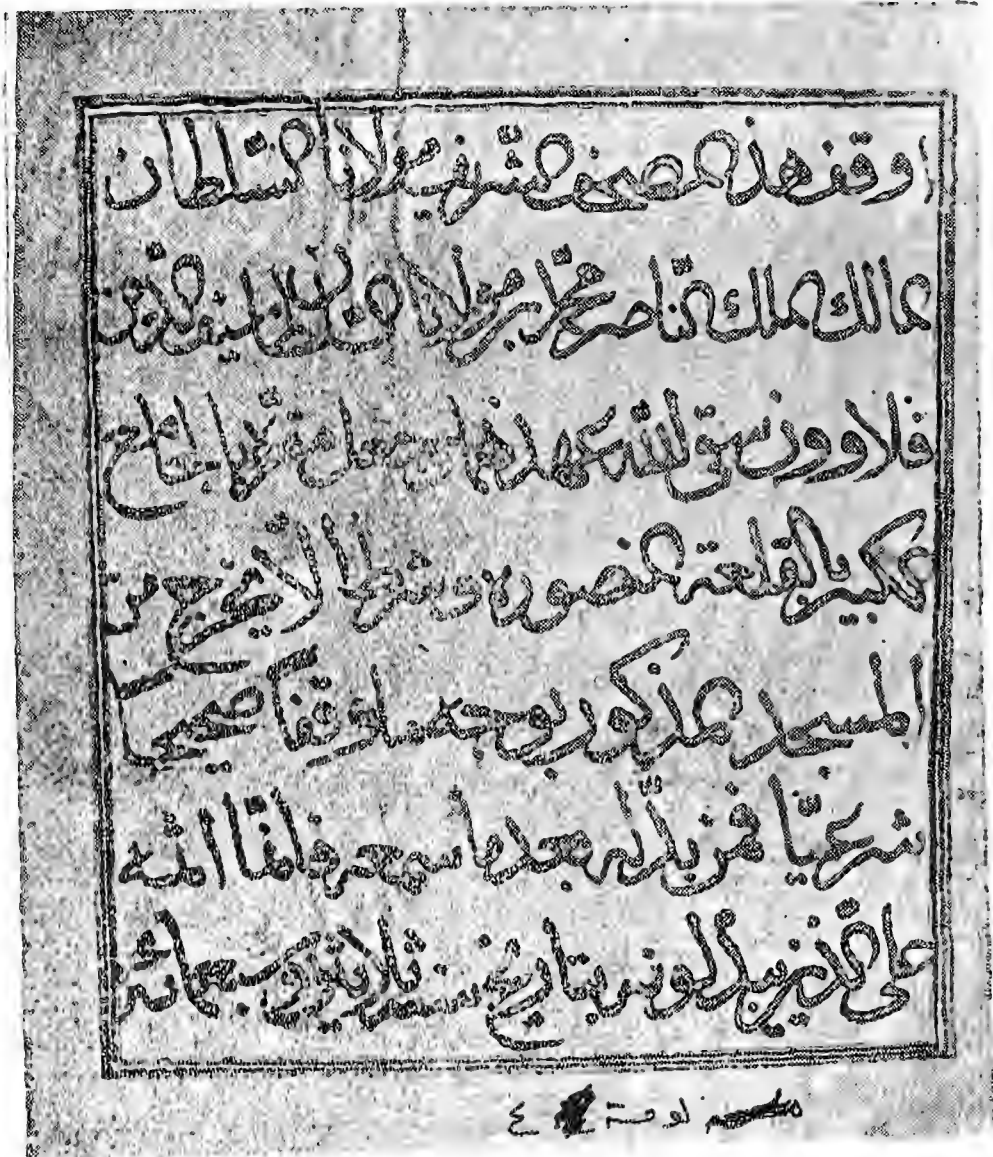 اوقف هذا المصحف الشريف مولانا السلطان
المالك الملك الناصر محمد ابن مولانا السلطان الملك المنصور
قلاوون سقى الله عهده
الكبير بالقلعة المنصورة وشرط الا يخرج من
المسجد المذكور بوجه ما وقفا صحيحا
شرعيا فمن بدله بعد ما سمعه فانما اثمه
على الذين يبدلونه بتاريخ سنة ثلاثين وسبعمائة
لوحة ٤